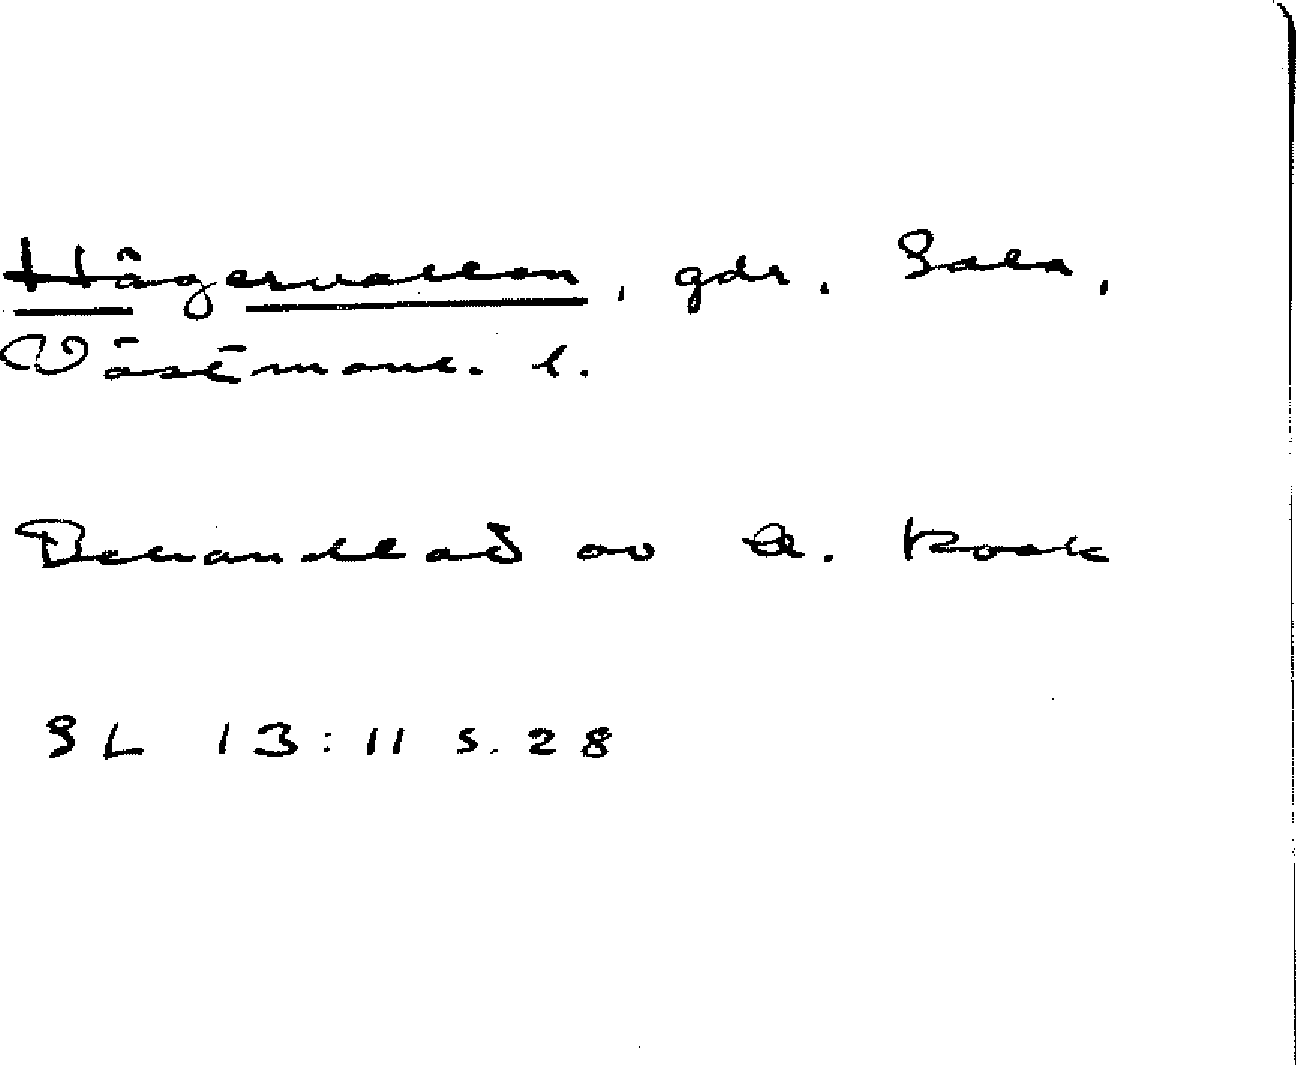 Hägervallen, gdr. Sala,
Västmanl. l.
Behandlad av A. Kock
SL 13:11 s. 28